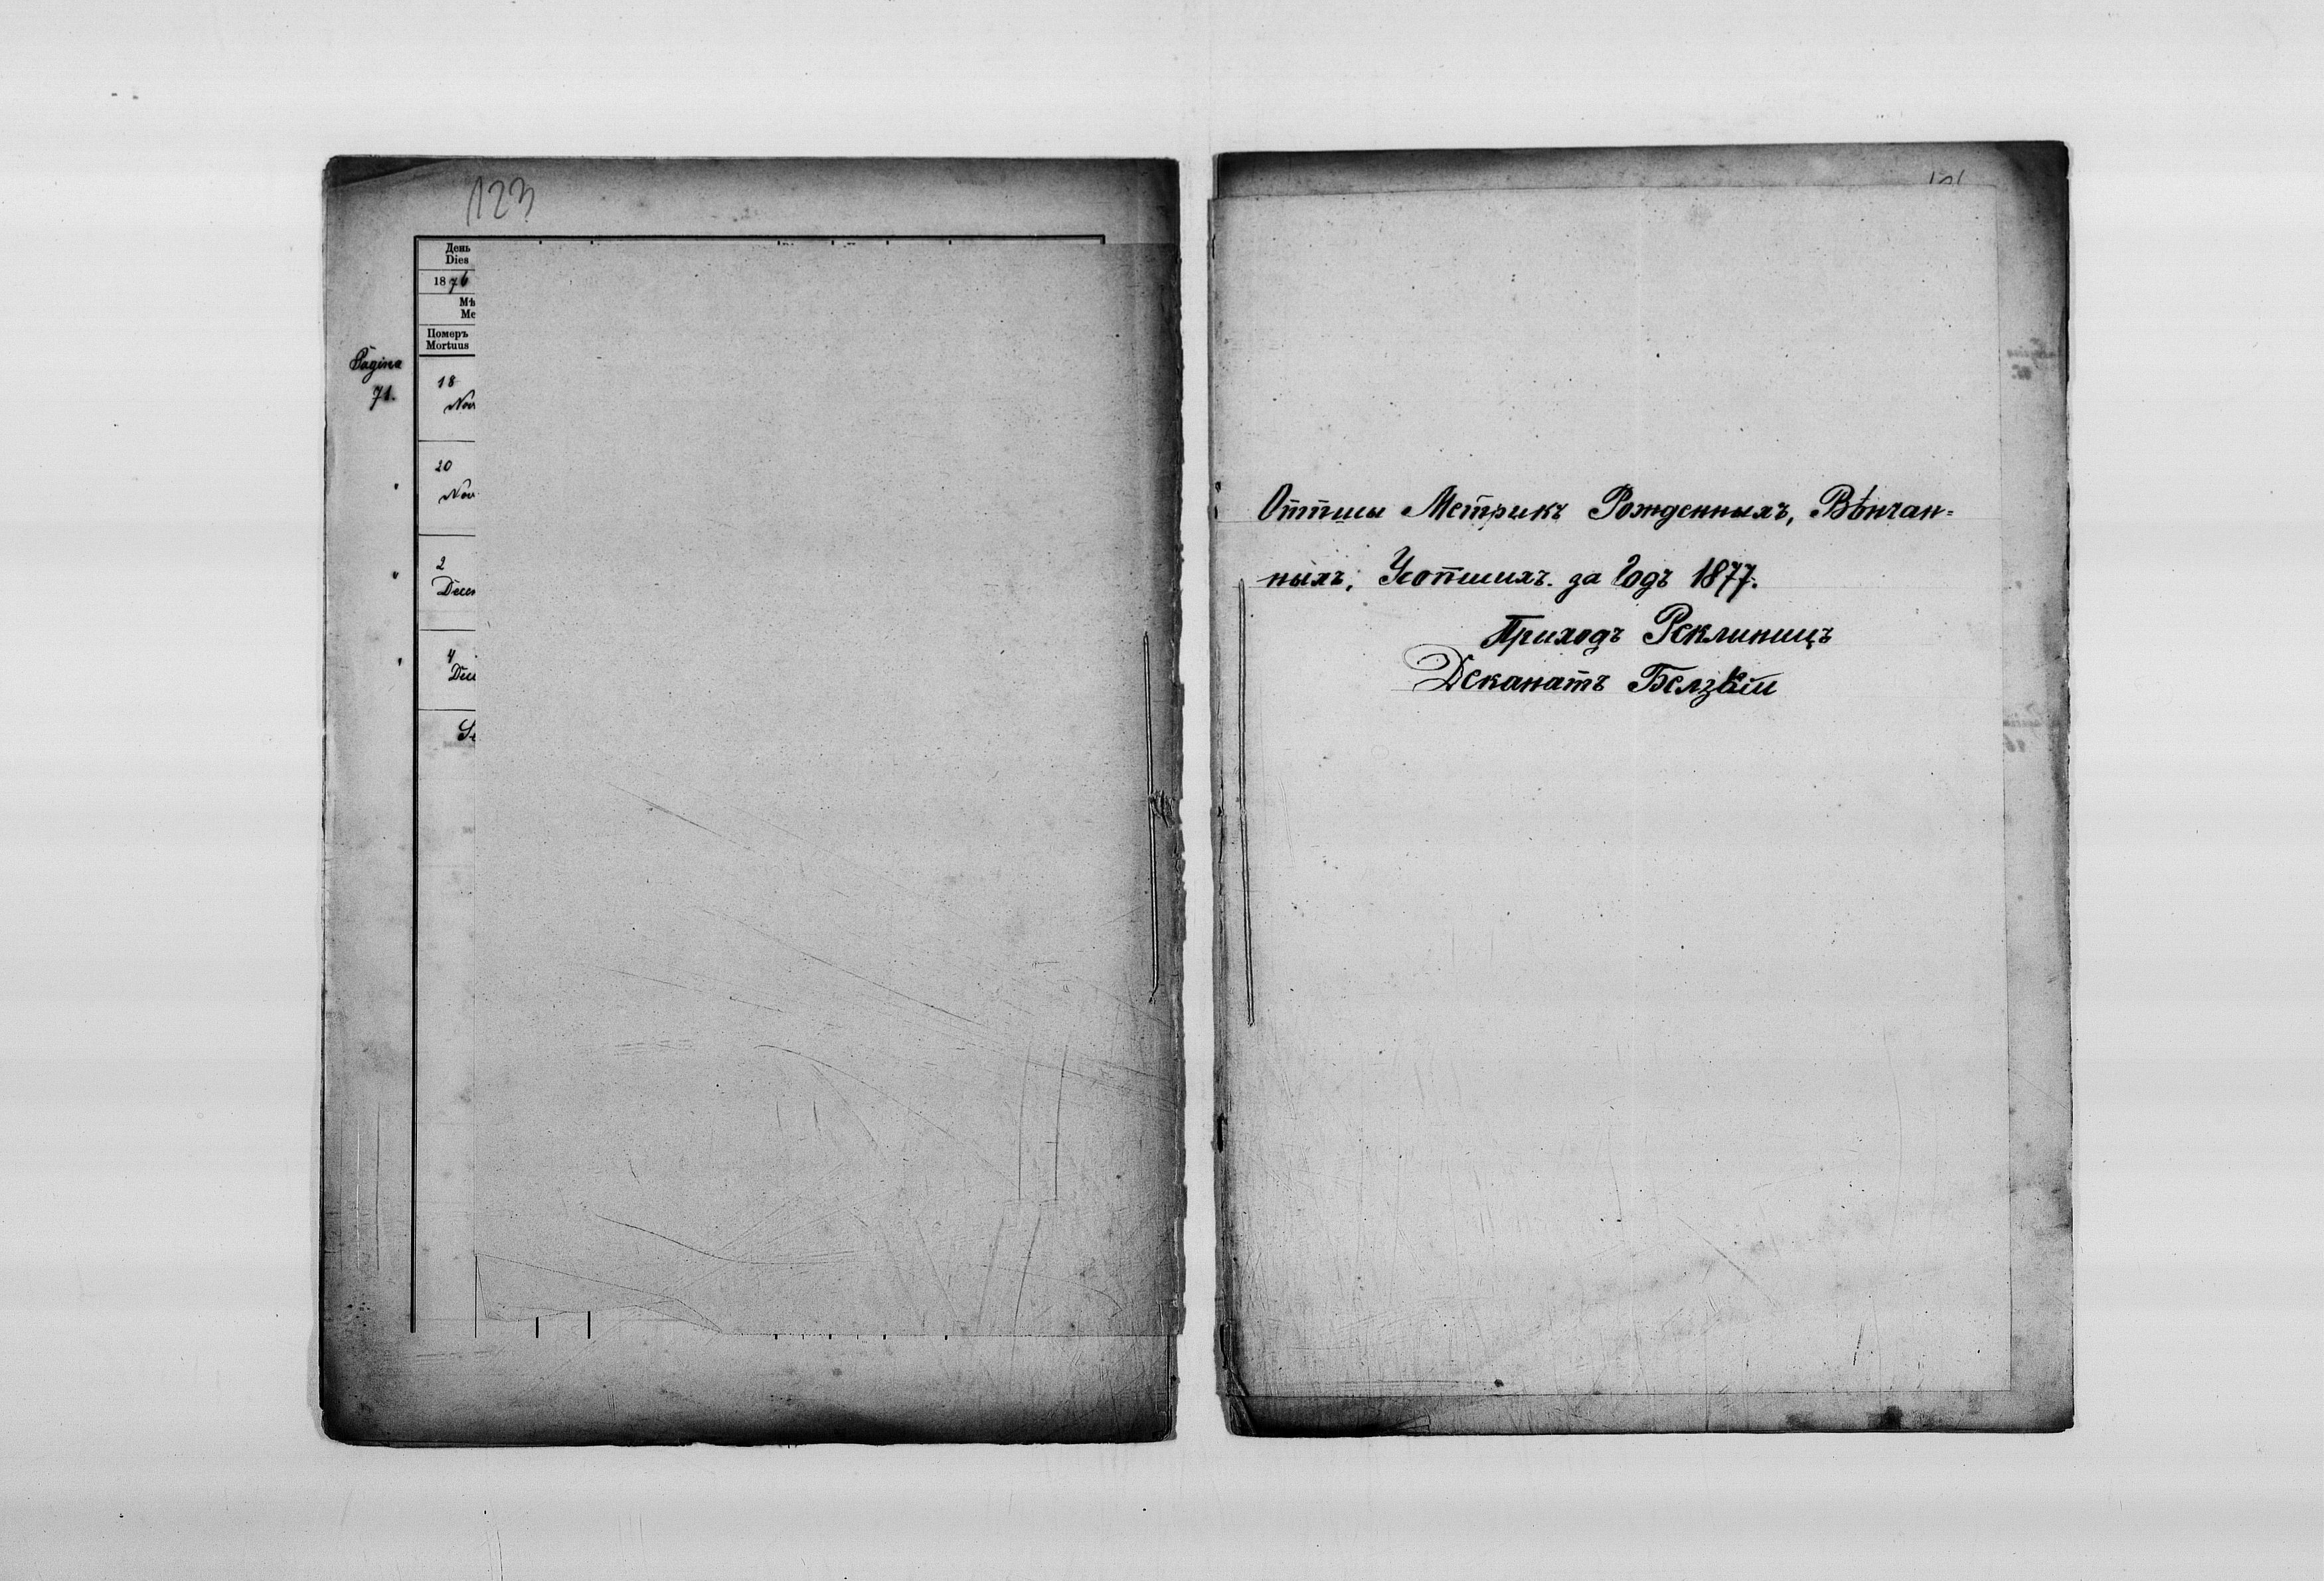 123
День
Dies
1876
Мѣ
Me
Померъ
Mortuus
Pagina
71.
18
Nov
20
Nov
2
Decem
4
Dec
Оттисы Метрикъ Рожденныхъ, Вѣнчан=
ныхъ, Усопшихъ за Годъ 1877.
Приходъ Реклинецъ
Деканатъ Белзкій